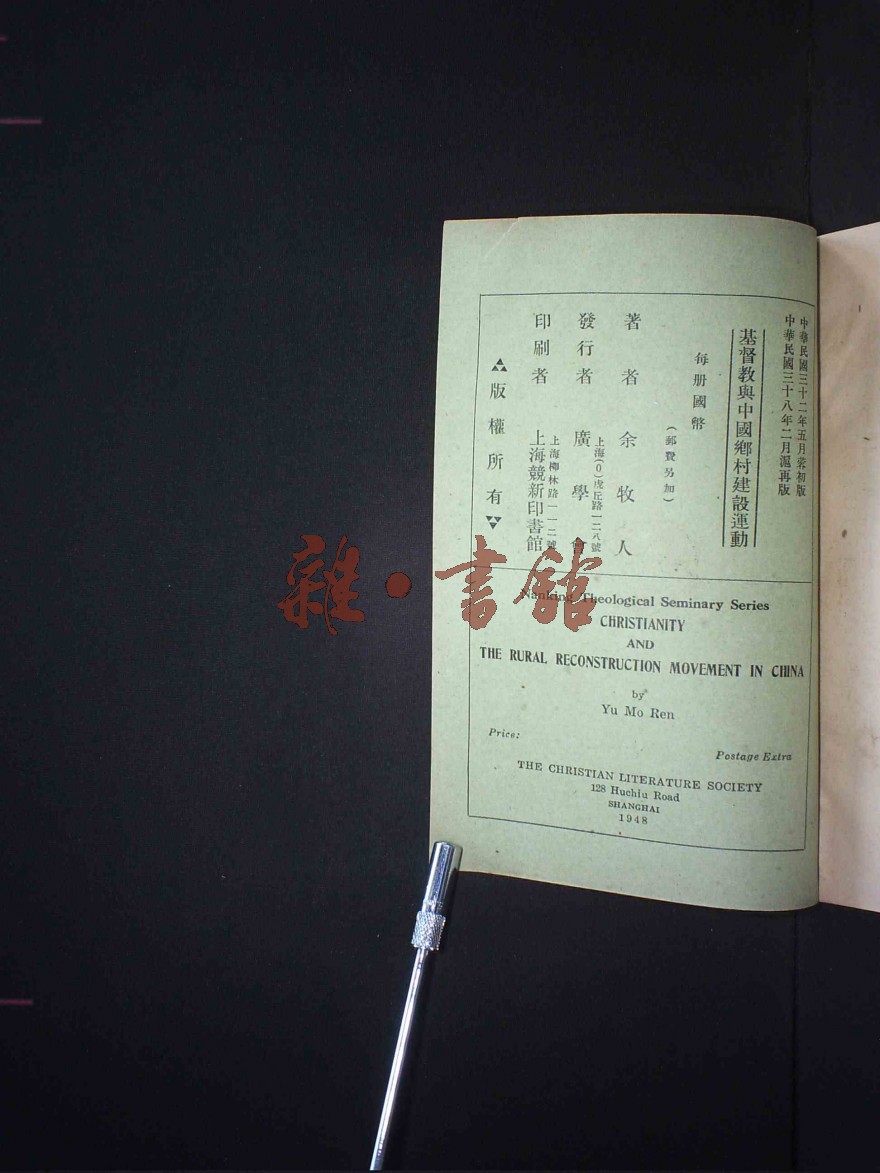 中華民國三十二年五月蓉初版
中華民國三十八年二月滬再版
基督教與中國鄉村建設運動
每册國幣
(郵費另加)
著者 余牧人
發行者 廣學會
上海(0)虎丘路一二八號
印刷者 上海競新印書館
上海柳林路一一二號
版權所有
Nanking Theological Seminary Series
CHRISTIANITY
AND
THE RURAL RECONSTRUCTION MOVEMENT IN CHINA
by
Yu Mo Ren
Price:
Postage Extra
THE CHRISTIAN LITERATURE SOCIETY
128 Huchiu Road
SHANGHAI
1948
雜·書館